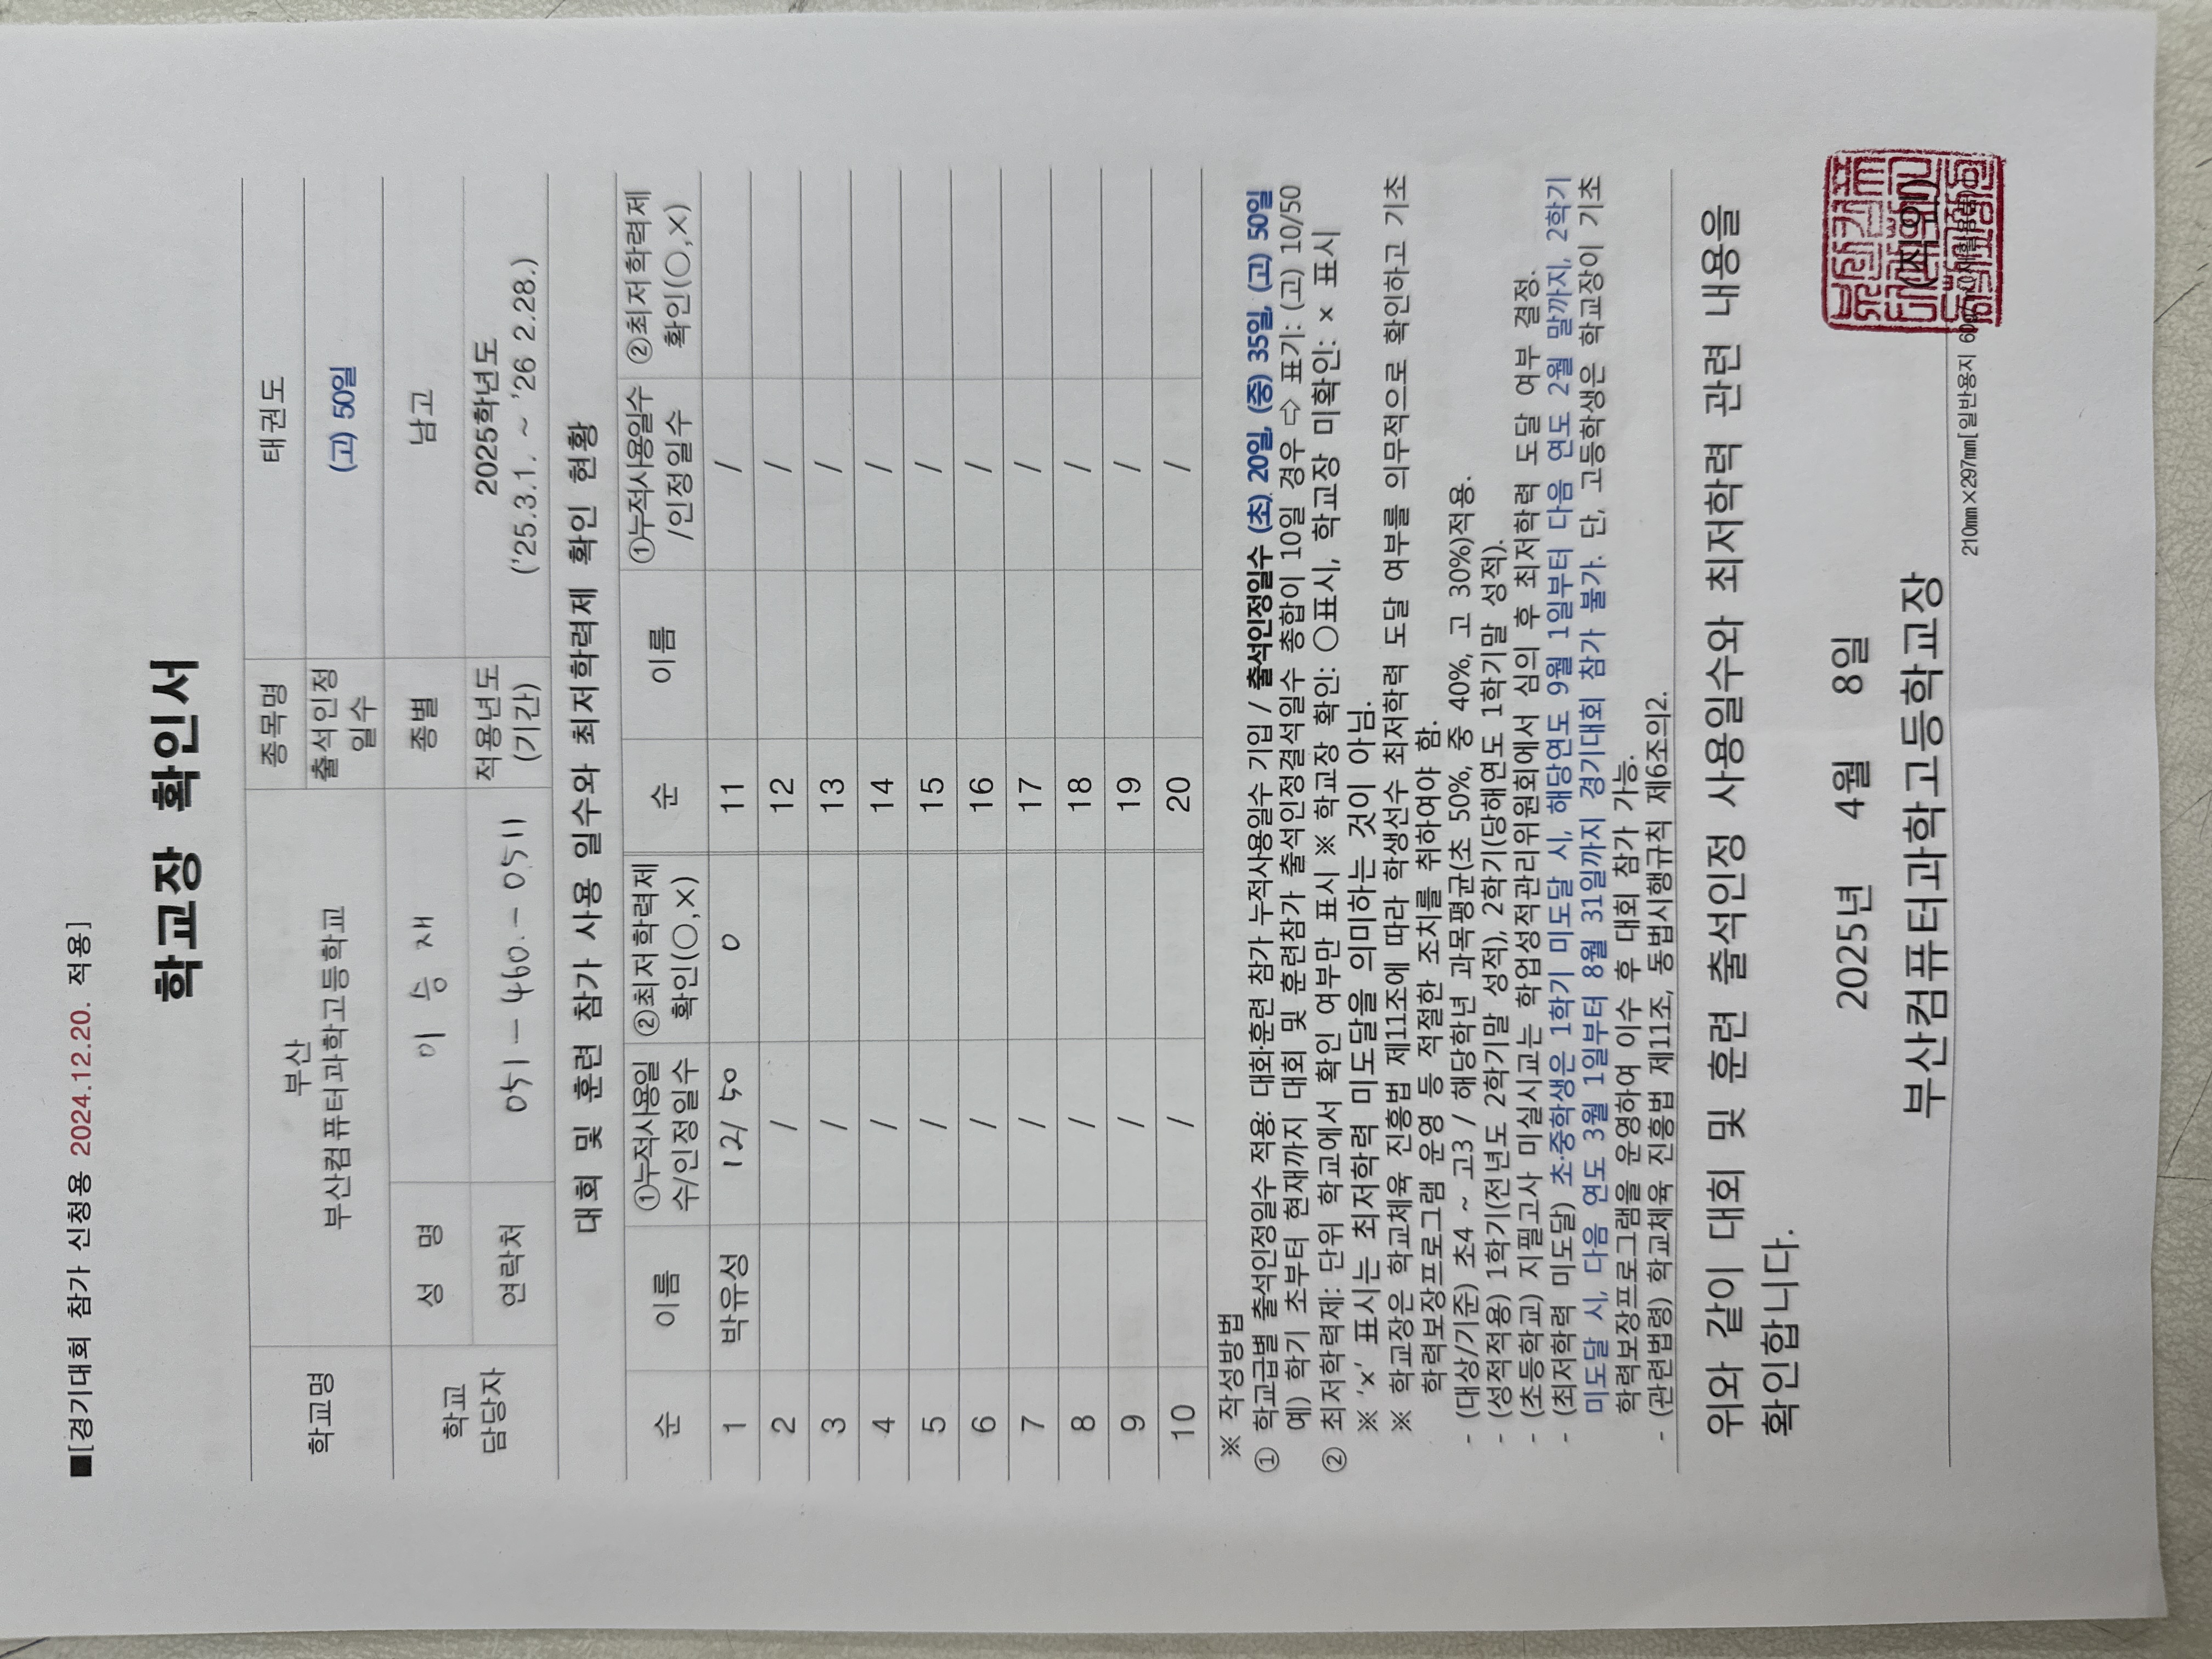 ■[경기대회 참가 신청용 2024.12.20. 적용]
학교장 확인서
학교명 부산 종목명 태권도
부산컴퓨터과학고등학교 출석인정 일수 (고) 50일
학교 담당자 성 명 이승재 종별 남고
연락처 051-460-0511 적용년도 (기간) 2025학년도
('25.3.1. ~ '26 2.28.)
대회 및 훈련 참가 사용 일수와 최저학력제 확인 현황
순 이름 ①누적사용일수/인정일수 ②최저학력제 확인(○,×) 순 이름 ①누적사용일수/인정일수 ②최저학력제 확인(○,×)
1 박유성 12/50 0 11 /
2 / 12 /
3 / 13 /
4 / 14 /
5 / 15 /
6 / 16 /
7 / 17 /
8 / 18 /
9 / 19 /
10 / 20 /
※ 작성방법
① 학교급별 출석인정일수 적용: 대회·훈련 참가 누적사용일수 기입 / 출석인정일수 (초) 20일, (중) 35일, (고) 50일
예) 학기 초부터 현재까지 대회 및 훈련참가 출석인정결석일수 총합이 10일 경우 ⇨ 표기: (고) 10/50
② 최저학력제: 단위 학교에서 확인 여부만 표시 ※ 학교장 확인: ○표시, 학교장 미확인: × 표시
※ 'x' 표시는 최저학력 미도달을 의미하는 것이 아님.
※ 학교장은 학교체육 진흥법 제11조에 따라 학생선수 최저학력 도달 여부를 의무적으로 확인하고 기초
학력보장프로그램 운영 등 적절한 조치를 취하여야 함.
- (대상/기준) 초4 ~ 고3 / 해당학년 과목평균(초 50%, 중 40%, 고 30%)적용.
- (성적적용) 1학기(전년도 2학기말 성적), 2학기(당해연도 1학기말 성적).
- (초등학교) 지필고사 미실시교는 학업성적관리위원회에서 심의 후 최저학력 도달 여부 결정.
- (최저학력 미도달) 초·중학생은 1학기 미도달 시, 해당연도 9월 1일부터 다음 연도 2월 말까지, 2학기
미도달 시, 다음 연도 3월 1일부터 8월 31일까지 경기대회 참가 불가. 단, 고등학생은 학교장이 기초
학력보장프로그램을 운영하여 이수 후 대회 참가 가능.
- (관련법령) 학교체육 진흥법 제11조, 동법시행규칙 제6조의2.
위와 같이 대회 및 훈련 출석인정 사용일수와 최저학력 관련 내용을
확인합니다.
2025년 4월 8일
부산컴퓨터과학고등학교장 (직인)
210㎜×297㎜[일반용지 60g/㎡(재활용품)]